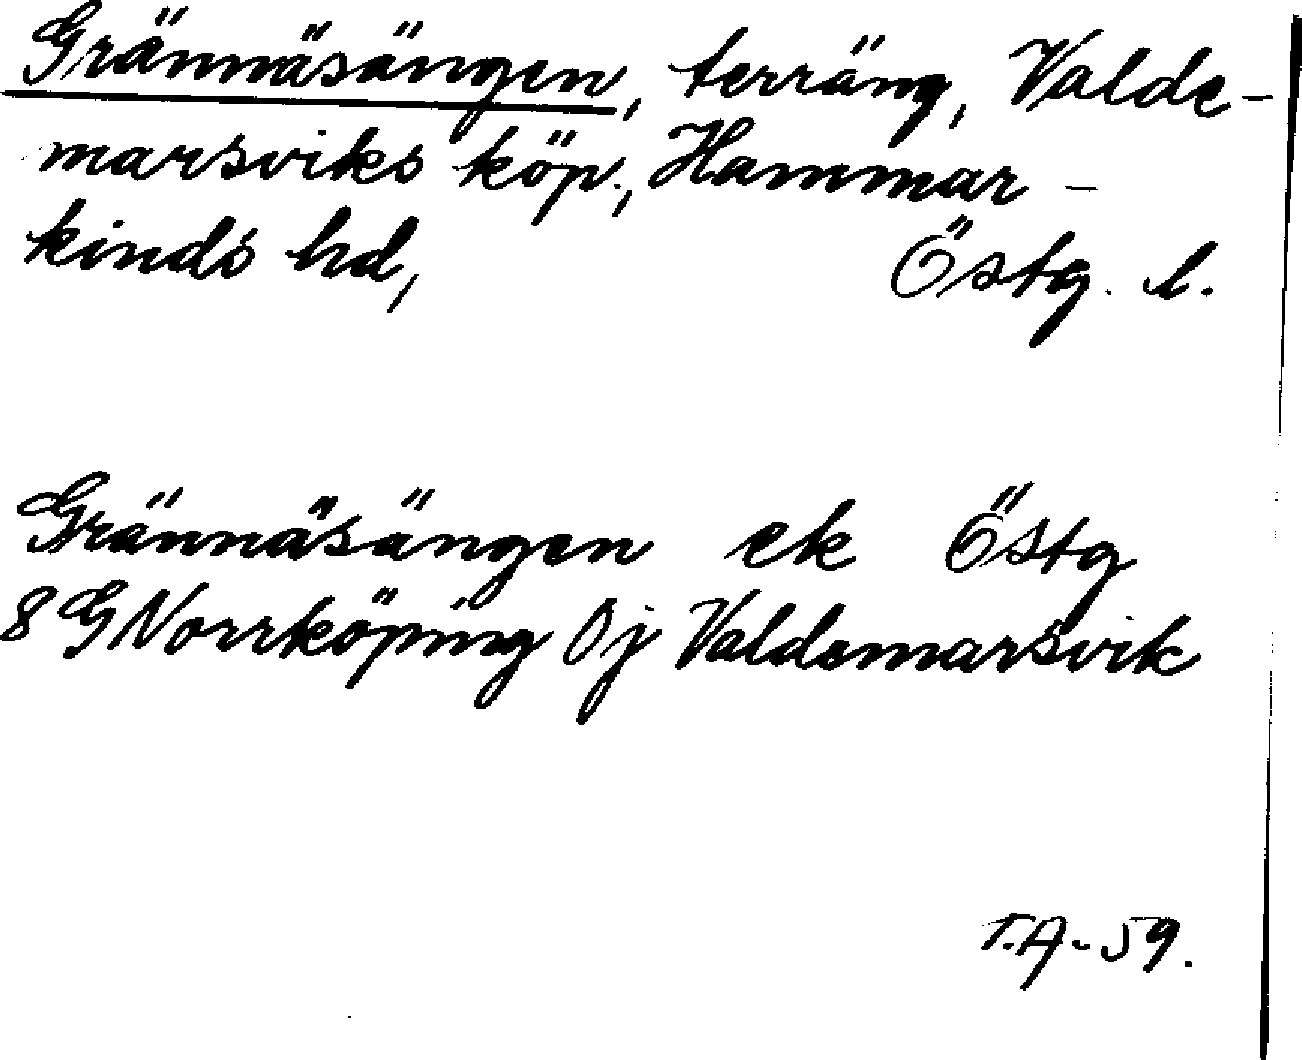 Grännäsängen, terräng, Valde-
marsviks köp., Hammar-
kinds hd, Östg. l.
Grännäsängen ek Östg
8 G Norrköping 0j Valdemarsvik
T.A-59.